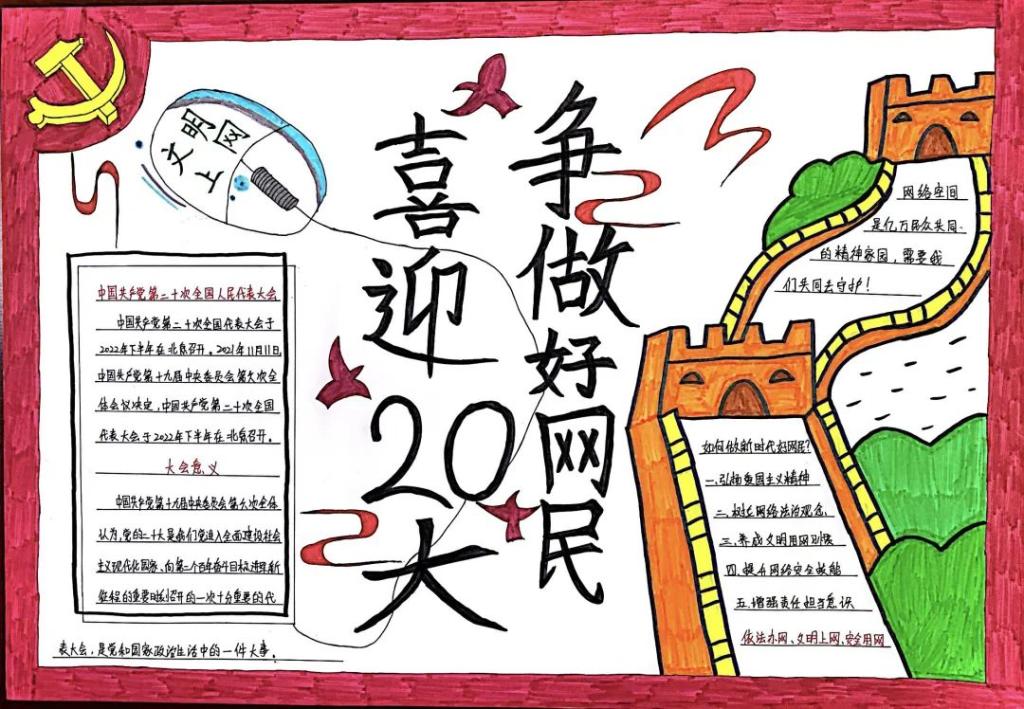 文明网上
喜迎20大
争做好网民
中国共产党第二十次全国人民代表大会
中国共产党第二十次全国代表大会于
2022年下半年在北京召开。2021年11月11日
中国共产党第十九届中央委员会第六次全
体会议决定，中国共产党第二十次全国
代表大会于2022年下半年在北京召开。
大会意义
中国共产党第十九届中央委员会第六次全体
认为，党的二十大是我们党进入全面建设社会
主义现代化国家、向第二个百年奋斗目标进军新
征程的重要时刻召开的一次十分重要的代
表大会，是党和国家政治生活中的一件大事。
网络空间
是亿万民众共同
的精神家园，需要我
们共同去守护！
如何做新时代好网民?
一.弘扬爱国主义精神
二.树托网络法治观念、
三.养成文明用网习惯
四.提升网络安全技能
五.增强责任担当意识
依法办网、文明上网、安全用网